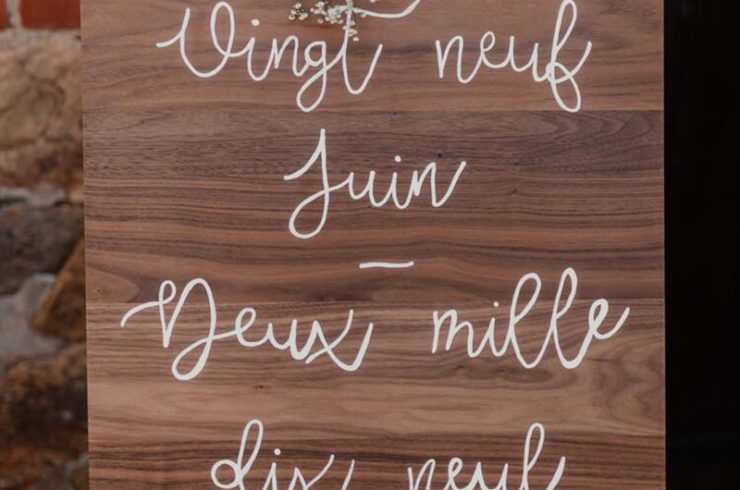 Vingt neuf
Juin
—
Deux mille
dix neuf